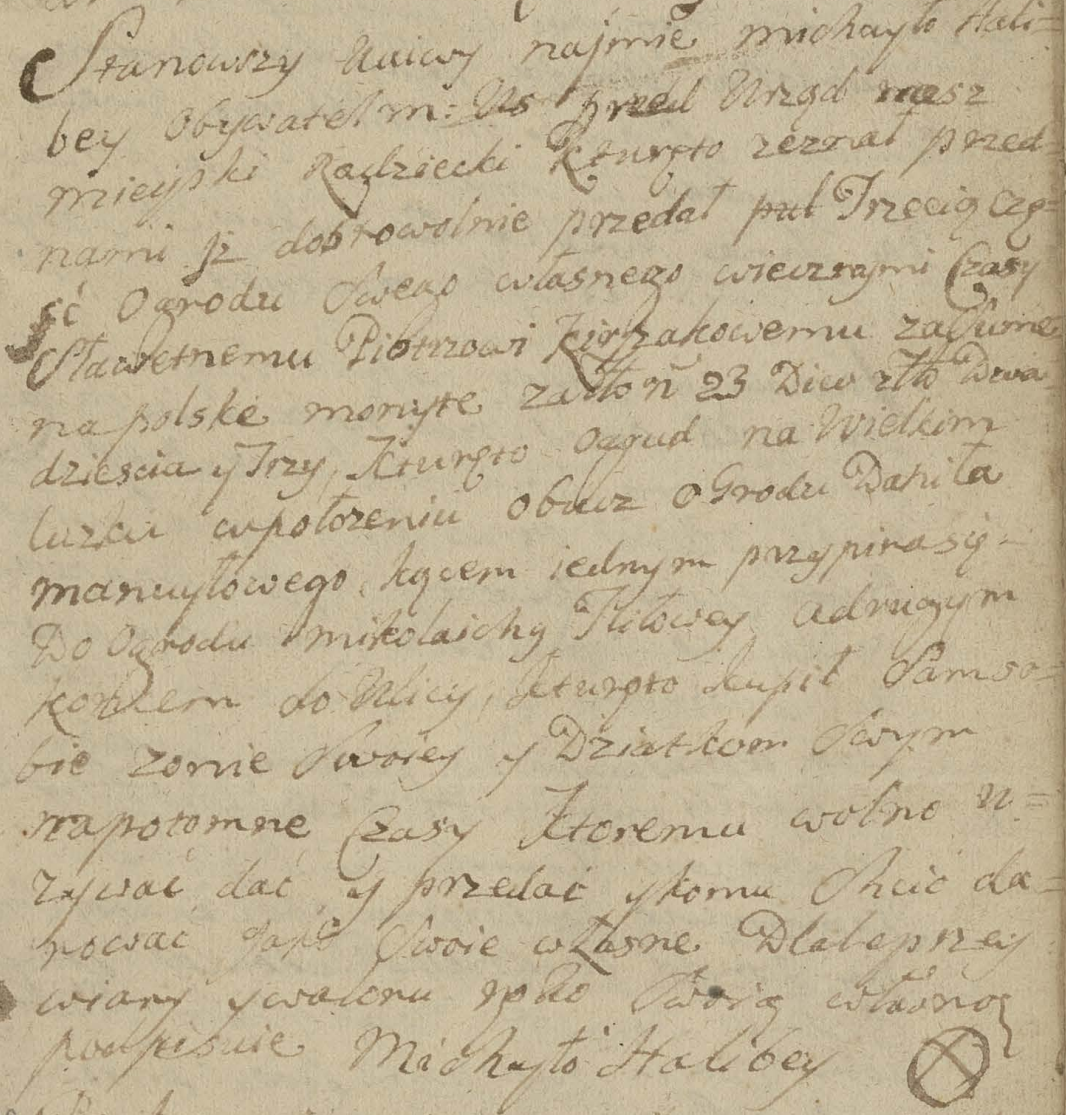 Stanowszy Uciwy najmie michayło Hali=
bey Obywatel m: Us przed Urząd nasz
mieyski Radziecki Kturęto zeznał przed=
nami Jż dobrowolnie przedał pul Trzecią Czę=
ść Ogrodu Swego własnego wiecznymi Czasy
Sławetnemu Piotrowi Kirzakowemu za Sumę
na polskę monyte zadłoń 23 Diw złło Dwa=
dzieścia y Trzy, Kturęto Ogrud na Wielkim
łużku wpołozeniu obucz oGrodu Daniła
manuyłowego, kącem iednym przypira się
Do Ogrodu mikolaichy Tiłowey adrugym
koncem do Ulicy, Kturęto kupił Sam so=
bie zonie Swoiey y Dziatkom Swym
napotomne Czasy Ktoremu wolno u=
zywać dać y przedać y komu Chcić da=
rować Jako Swoie własne Dla lepszey
wiary y waloru ręko Swoią własno
podpisuie Michayło Halibey